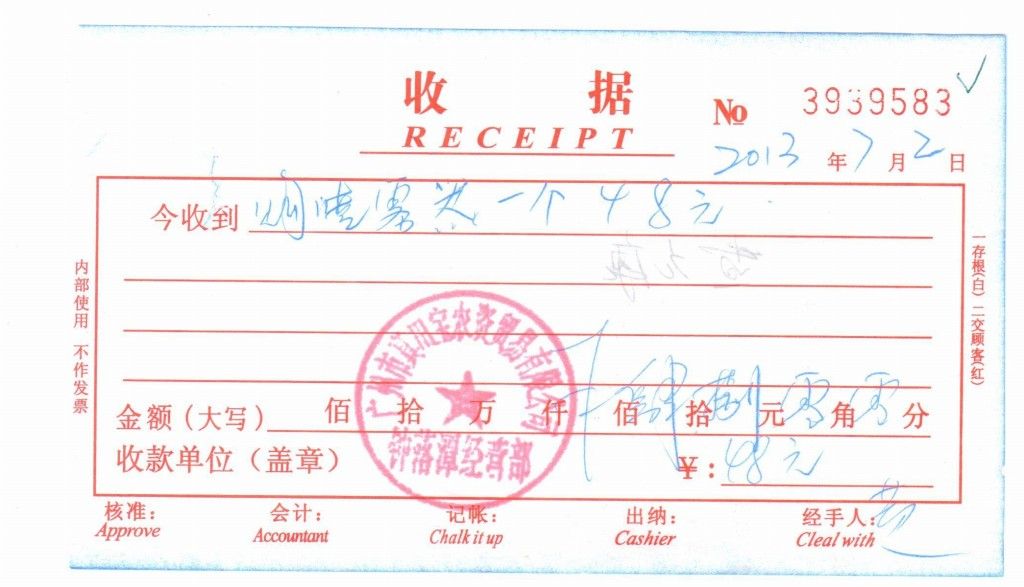 收 据
RECEIPT
№ 3939583
2013 年 7 月 2 日
今收到 喷头一个 48元
内部使用 不作发票
一存根(白) 二交顾客(红)
金额(大写) 佰 拾 万 仟 佰 肆 拾 捌 元 零 角 零 分
收款单位(盖章) ¥: 48元
广州市 宝农资贸易有限公司
钟落潭经营部
核准: 会计: 记帐: 出纳: 经手人:
Approve Accountant Chalk it up Cashier Cleal with